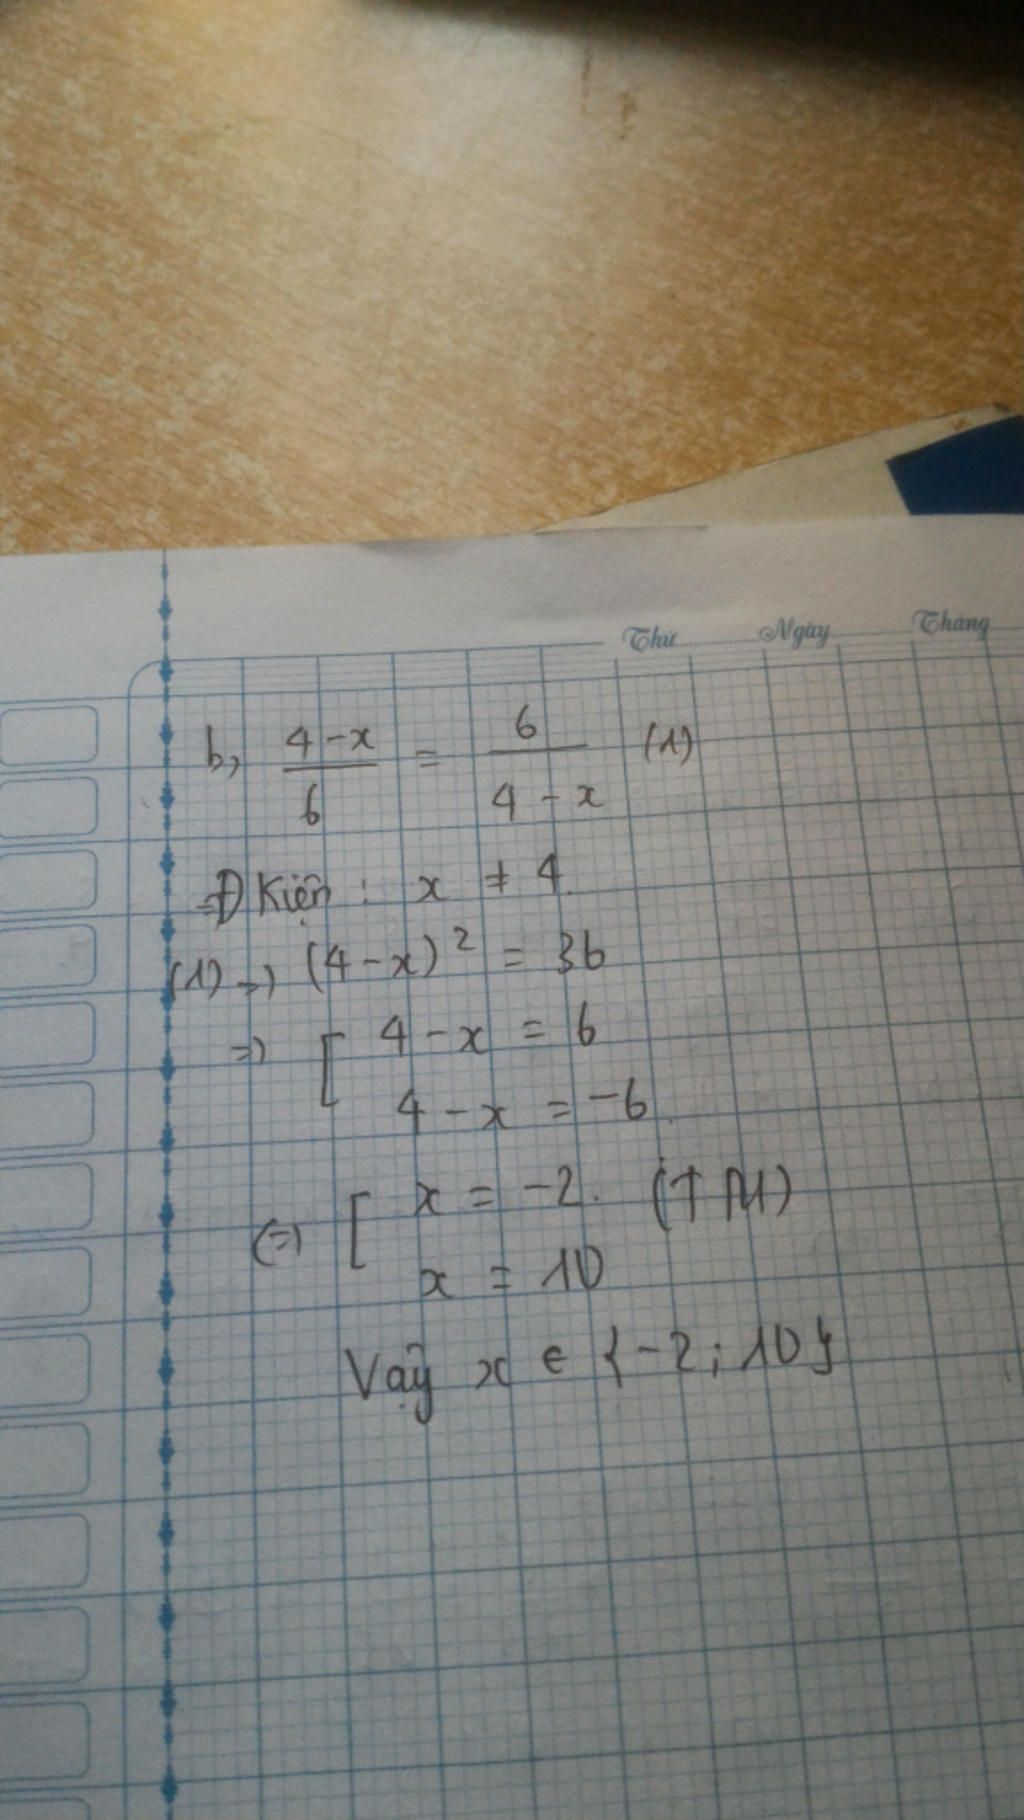 Thứ Ngày Tháng
b, 4-x/6 = 6/4-x (1)
Đ Kiện : x ≠ 4.
(1) => (4-x)² = 36
=> [ 4-x = 6
4-x = -6.
<=> [ x = -2. (TM)
x = 10
Vậy x ∈ {-2; 10}